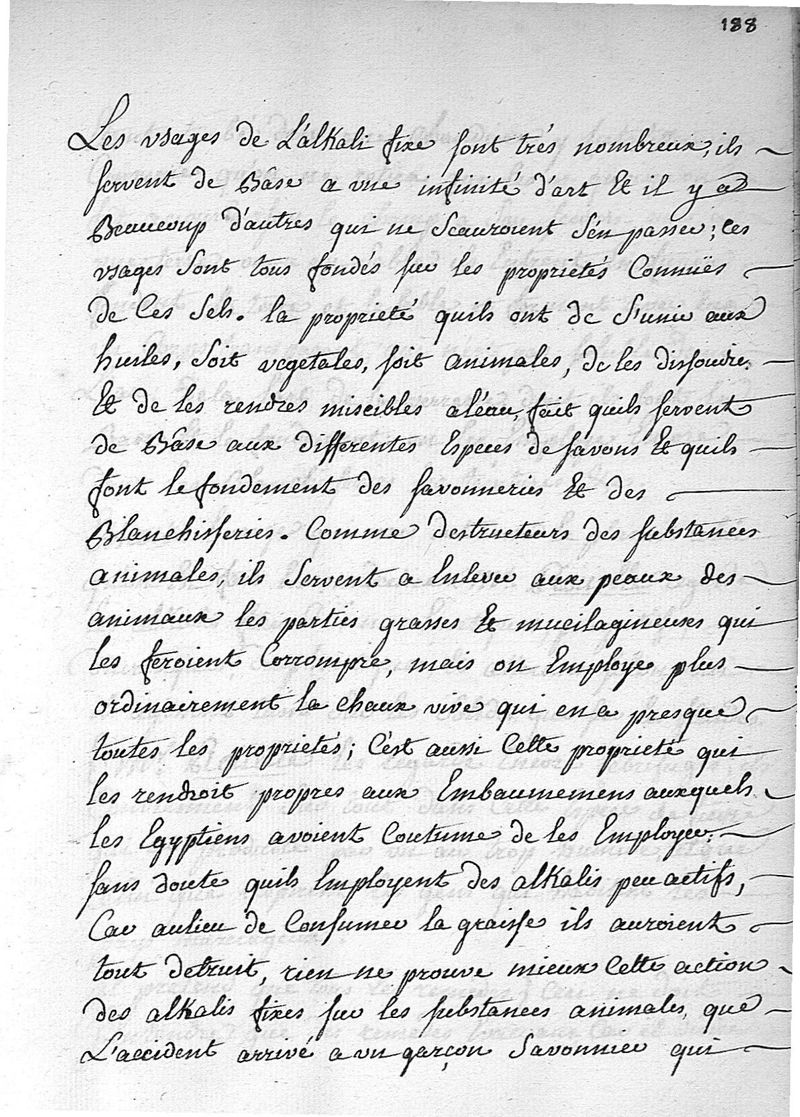 188
Les usages de L'alkali fixe sont trés nombreux, ils
servent de Bâse a une infinité d'art Et il y a
Beaucoup d'autres qui ne Scauroient S'en passer; Ces
usages Sont tous fondés sur les proprietés Connuës
de Ces Sels. la proprieté quils ont de S'unir aux
huiles, Soit vegetales, soit animales, de les dissoudre,
Et de les rendres miscibles a l'eau, fait quils servent
de Bâse aux differentes Especes de savons Et quils
font le fondement des savonneries Et des
Blanchisseries. Comme destructeurs des substances
animales, ils Servent a Enlever aux peaux des
animaux les parties grasses Et mucilagineuses qui
les feroient Corrompre, mais on Employe plus
ordinairement la chaux vive qui en a presque
toutes les proprietés; C'est aussi Cette proprieté qui
les rendroit propres aux Embaumemens auxquels
les Egyptiens avoient Coutume de les Employer.
sans doute quils Employent des alkalis peu actifs,
Car aulieu de Consumer la graisse ils auroient
tout detruit, rien ne prouve mieux Cette action
des alkalis fixes sur les substances animales, que
L'accident arrivé a un garçon Savonnier qui